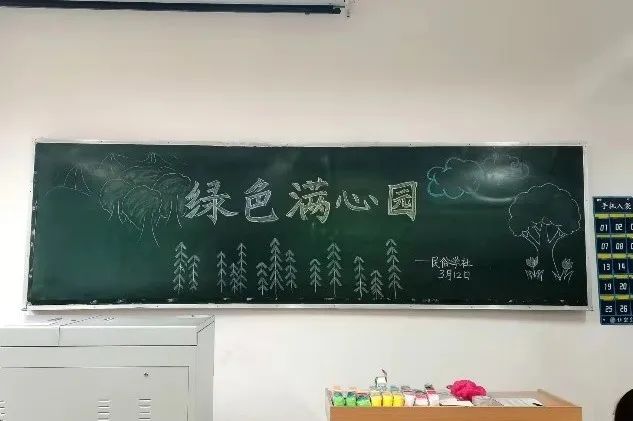 绿色满心园
——民俗学社
3月12日
手机入袋
01 02
07 08
13 14
19 20
25 26